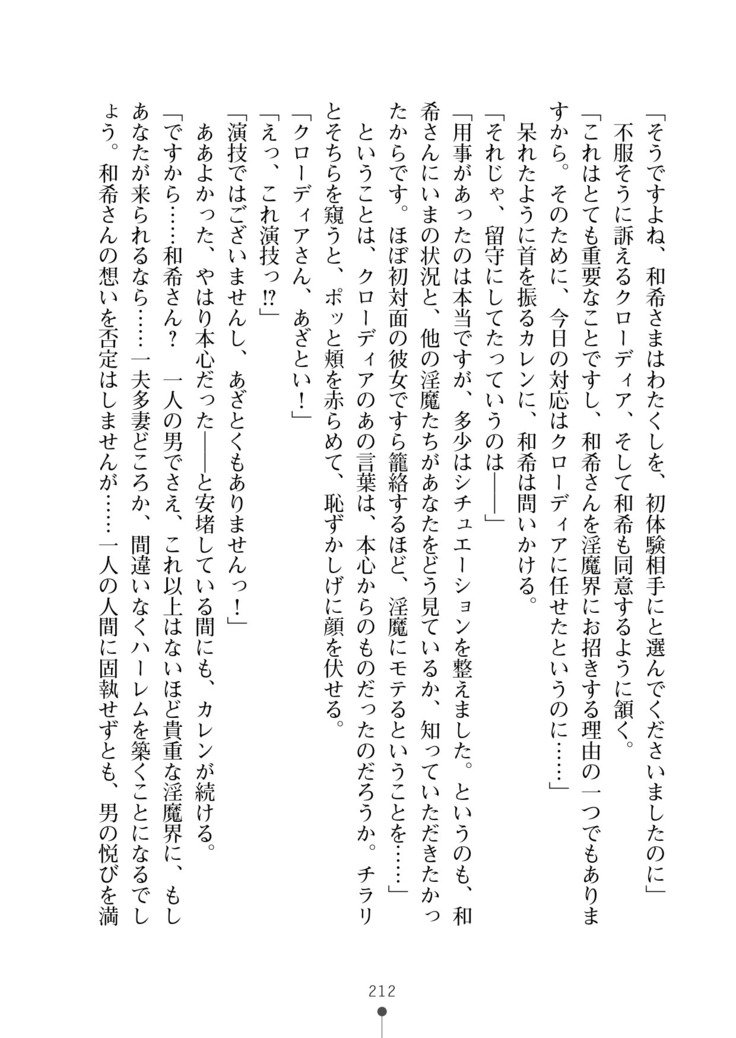 「そうですよね、和希さまはわたくしを、初体験相手にと選んでくださいましたのに」
　不服そうに訴えるクローディア、そして和希も同意するように頷く。
「これはとても重要なことですし、和希さんを淫魔界にお招きする理由の一つでもありま
すから。そのために、今日の対応はクローディアに任せたというのに……」
　呆れたように首を振るカレンに、和希は問いかける。
「それじゃ、留守にしてたっていうのは――」
「用事があったのは本当ですが、多少はシチュエーションを整えました。というのも、和
希さんにいまの状況と、他の淫魔たちがあなたをどう見ているか、知っていただきたかっ
たからです。ほぼ初対面の彼女ですら籠絡するほど、淫魔にモテるということを……」
　ということは、クローディアのあの言葉は、本心からのものだったのだろうか。チラリ
とそちらを窺うと、ポッと頬を赤らめて、恥ずかしげに顔を伏せる。
「クローディアさん、あざとい！」
「えっ、これ演技っ!?」
「演技ではございませんし、あざとくもありませんっ！」
　ああよかった、やはり本心だった――と安堵している間にも、カレンが続ける。
「ですから……和希さん？　一人の男でさえ、これ以上はないほど貴重な淫魔界に、もし
あなたが来られるなら……一夫多妻どころか、間違いなくハーレムを築くことになるでし
ょう。和希さんの想いを否定はしませんが……一人の人間に固執せずとも、男の悦びを満
212